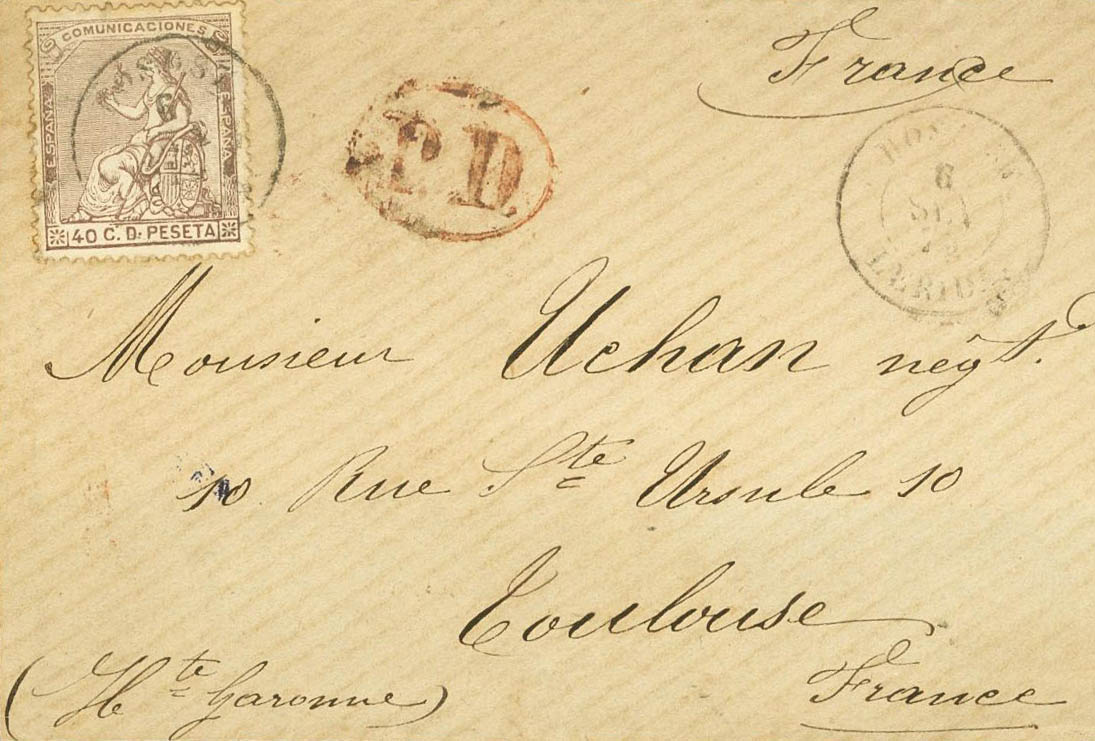 COMUNICACIONES
ESPAÑA
ESPAÑA
40 C. D. PESETA
P.D.
France
6
SET
LERIDA
Monsieur Uchan négt.
10 Rue Ste Ursule 10
Toulouse
(Hte Garonne)
France